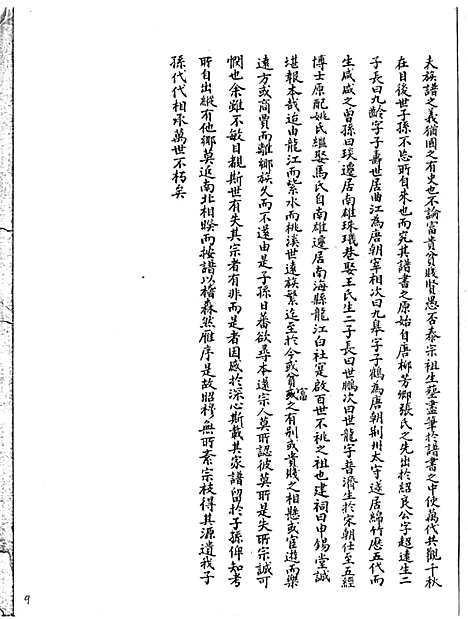 夫族譜之義猶國之有史也不論富貴貧賤賢愚否泰宗祖生塟盡筆於譜書之中使萬代共觀千秋
在目後世子孫不忘所自來也而究其譜書之原始自唐柳芳鄉張氏之先出於紹良公字起遠生二
子長曰九齡字子壽世居曲江為唐朝宰相次曰九皋字子鶴為唐朝荆州太守遂居綿竹歷五代而
生咸咸之曾孫曰琰遷居南雄珠璣巷娶王氏生二子長曰世鵬次曰世龍字普濟生於宋朝仕至五經
博士原配姚氏繼娶馬氏自南雄遷居南海縣龍江白社寔啟百世不祧之祖也建祠曰申錫堂誠
堪報本哉迨由龍江而紫水而桃溪世遠族繁迄至於今或貧或富之有别或貴賤之相懸或宦遊而樂
遠方或商賈而離鄉族久而不還由是子孫日蕃欲尋本逺宗人莫所認彼莫所是失所宗誠可
憫也余雖不敏目覩斯世有失其宗者有非而是者因感於深心斯載其家譜留於子孫仰知考
所自出縱有他鄉莫近南北相暌而按譜以稽森然雁序是故昭穆無所紊宗枝得其源遺我子
孫代代相承萬世不朽矣
9